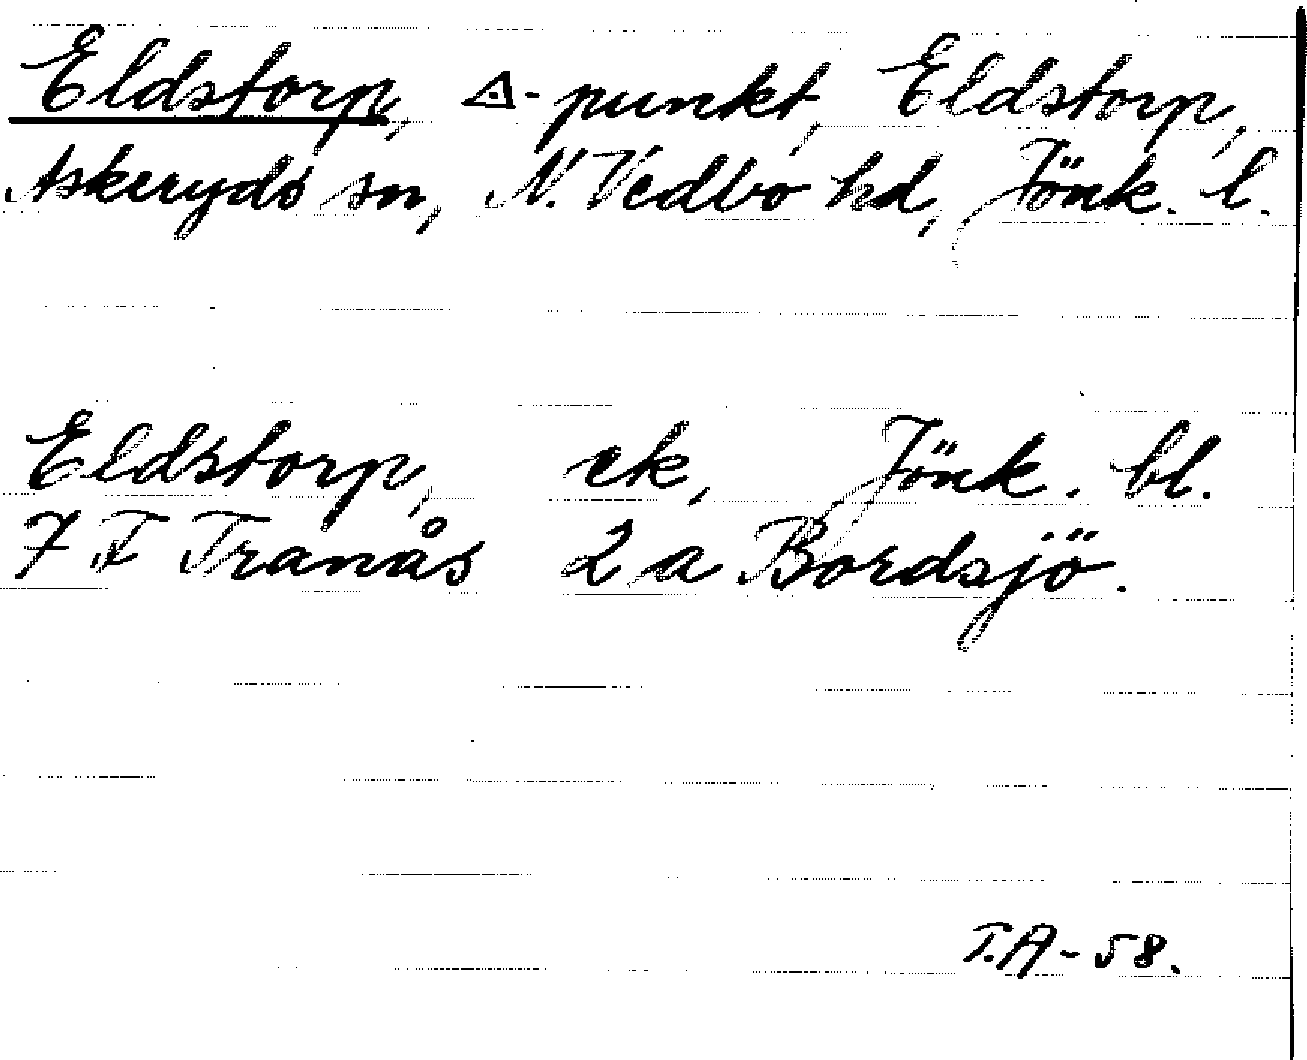 Eldstorp, ◬-punkt, Eldstorp,
Askeryds sn, N. Vedbo hd, Jönk. l.
Eldstorp, ek, Jönk. bl.
7 F Tranås 2 a Bordsjö.
T.A-58.